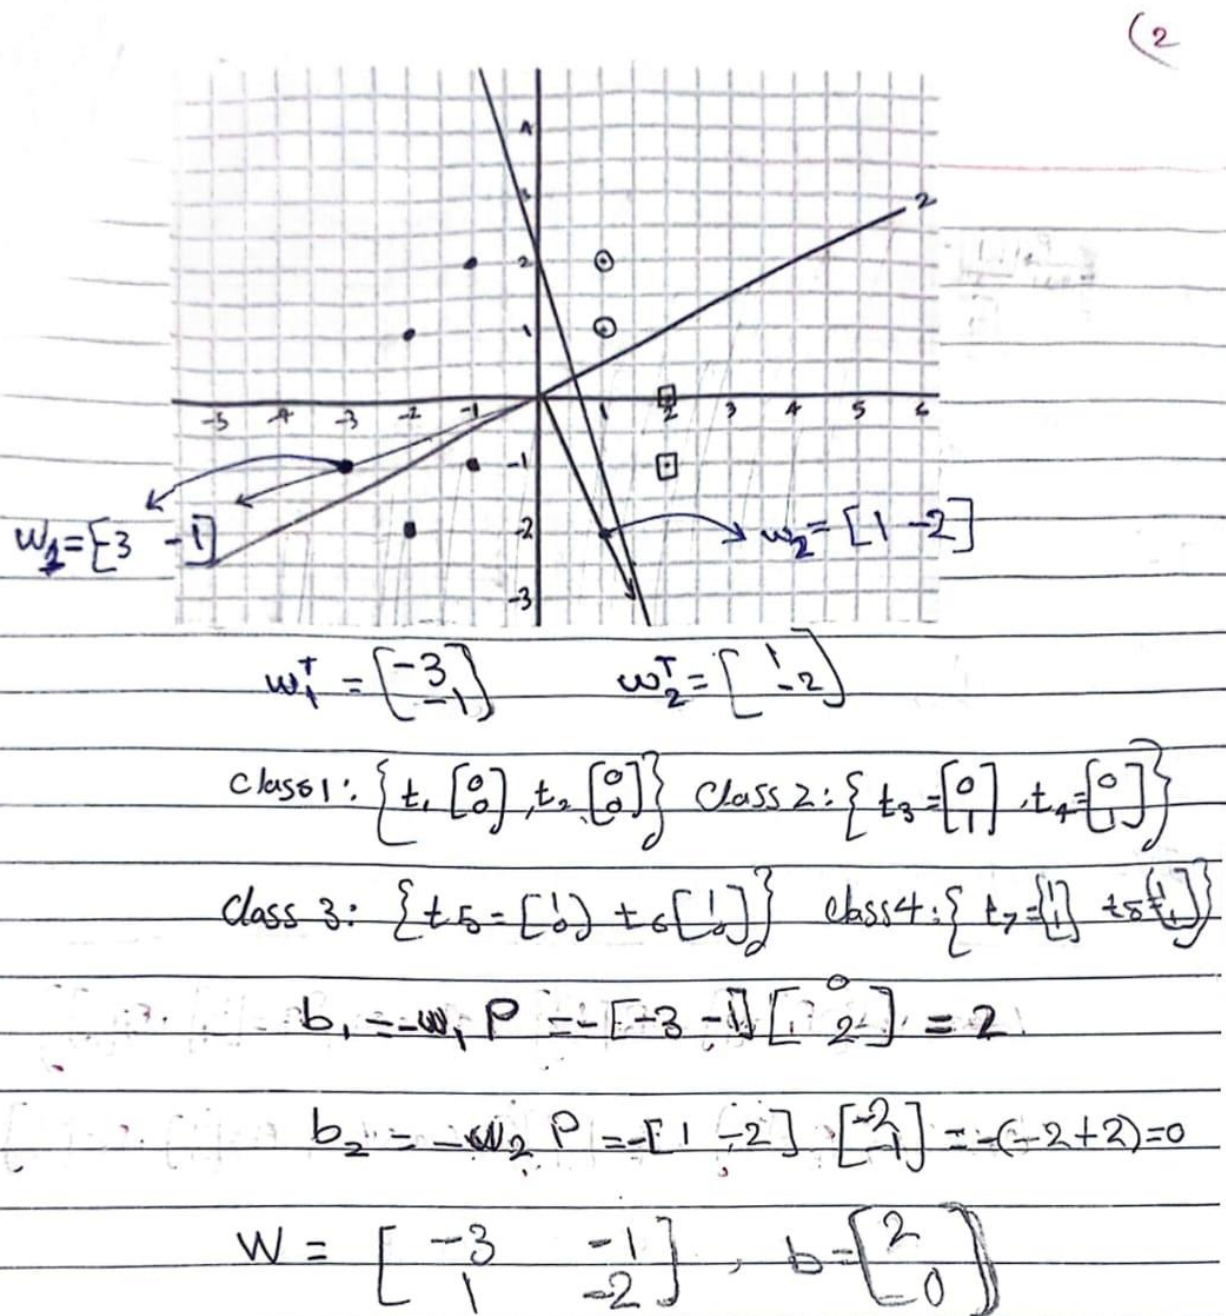 (2
4
3
2
2
1
-5 -4 -3 -2 -1 1 2 3 4 5 6
-1
-2
-3
w₁=[-3 -1]
w₂=[1 -2]
w₁ᵀ = [-3 -1] w₂ᵀ = [1 -2]
class1: {t₁ [0 0], t₂ [0 0]} class 2: {t₃ = [0 1], t₄ = [0 1]}
class 3: {t5 = [1 0) t6 [1 0]} class4: {t7 = [1 1] t8 = [1 1]}
b₁ = -w₁ P = -[-3 -1] [0 2] = 2
b₂ = -w₂ P = -[1 -2] [-2 -1] = -(-2+2)=0
W = [-3 -1 1 -2], b = [2 0]